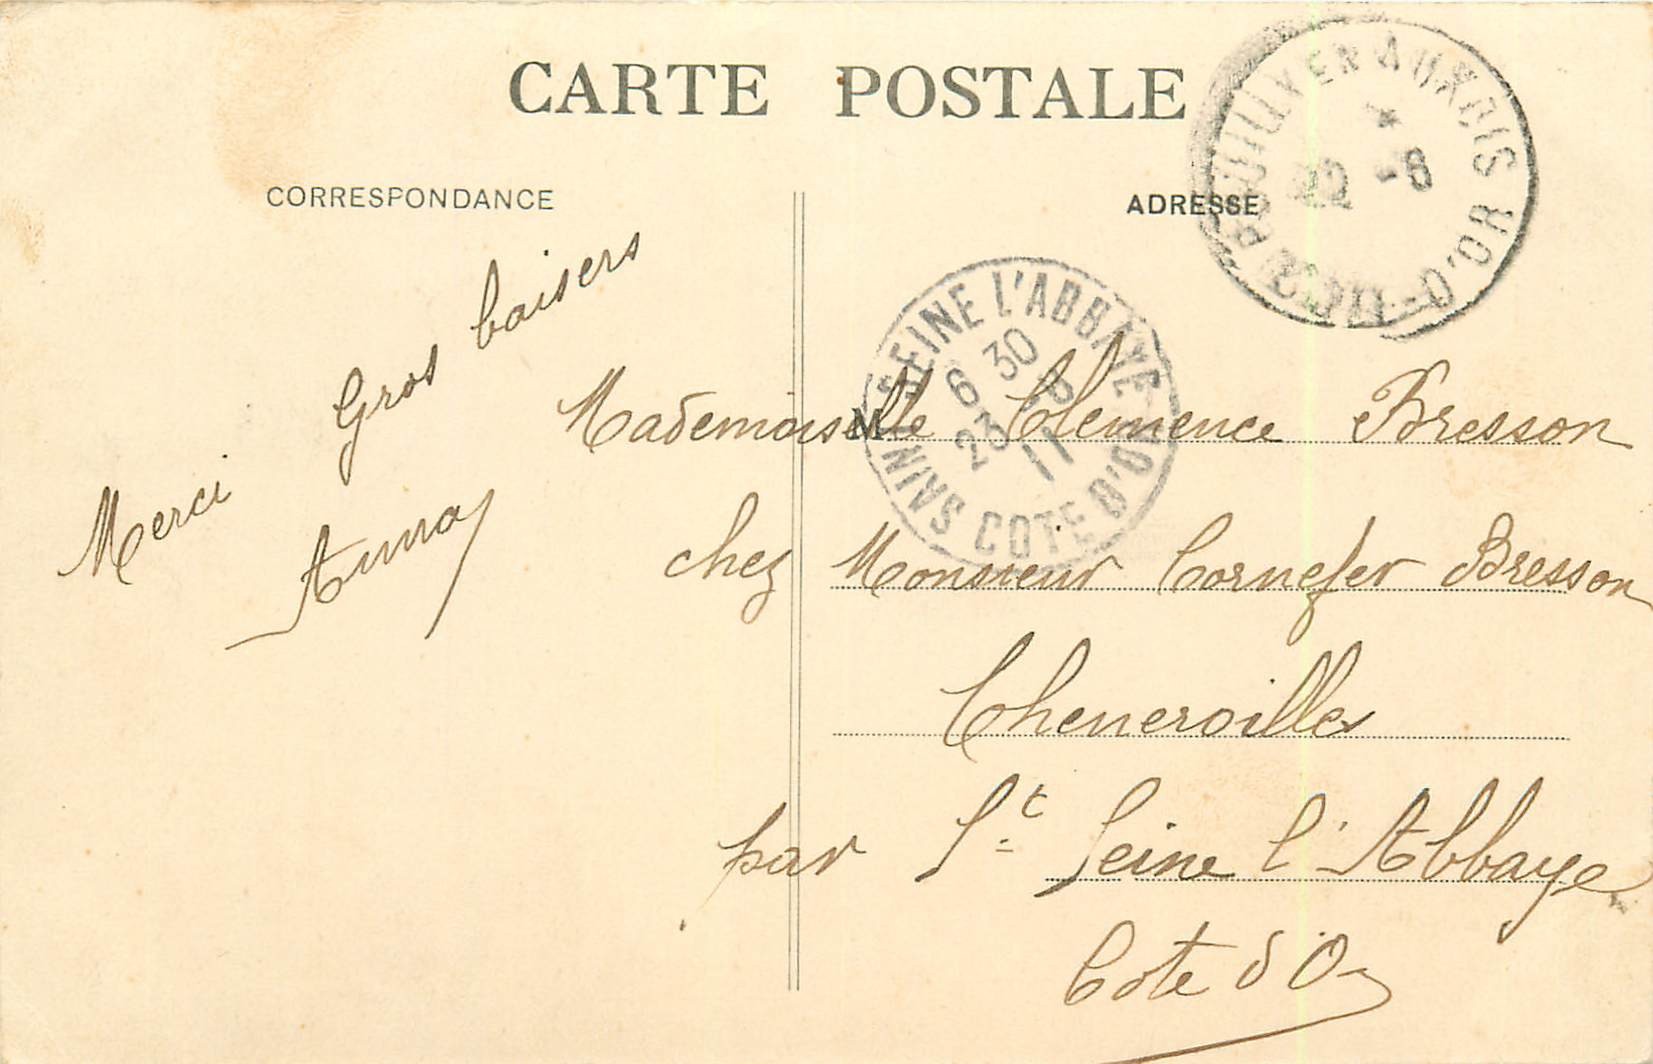 CARTE POSTALE
CORRESPONDANCE
ADRESSE
POUILLY EN AUXOIS
* 22 -8
CÔTE-D'OR
SAINT SEINE L'ABBAYE
6 30
23 -8
11
COTE D'OR
Merci Gros baisers
Anna
M
Mademoiselle Clemence Bresson
chez Monsieur Cornefer Bresson
Cheneroilles
par St Seine l'Abbaye
Cote d'Or